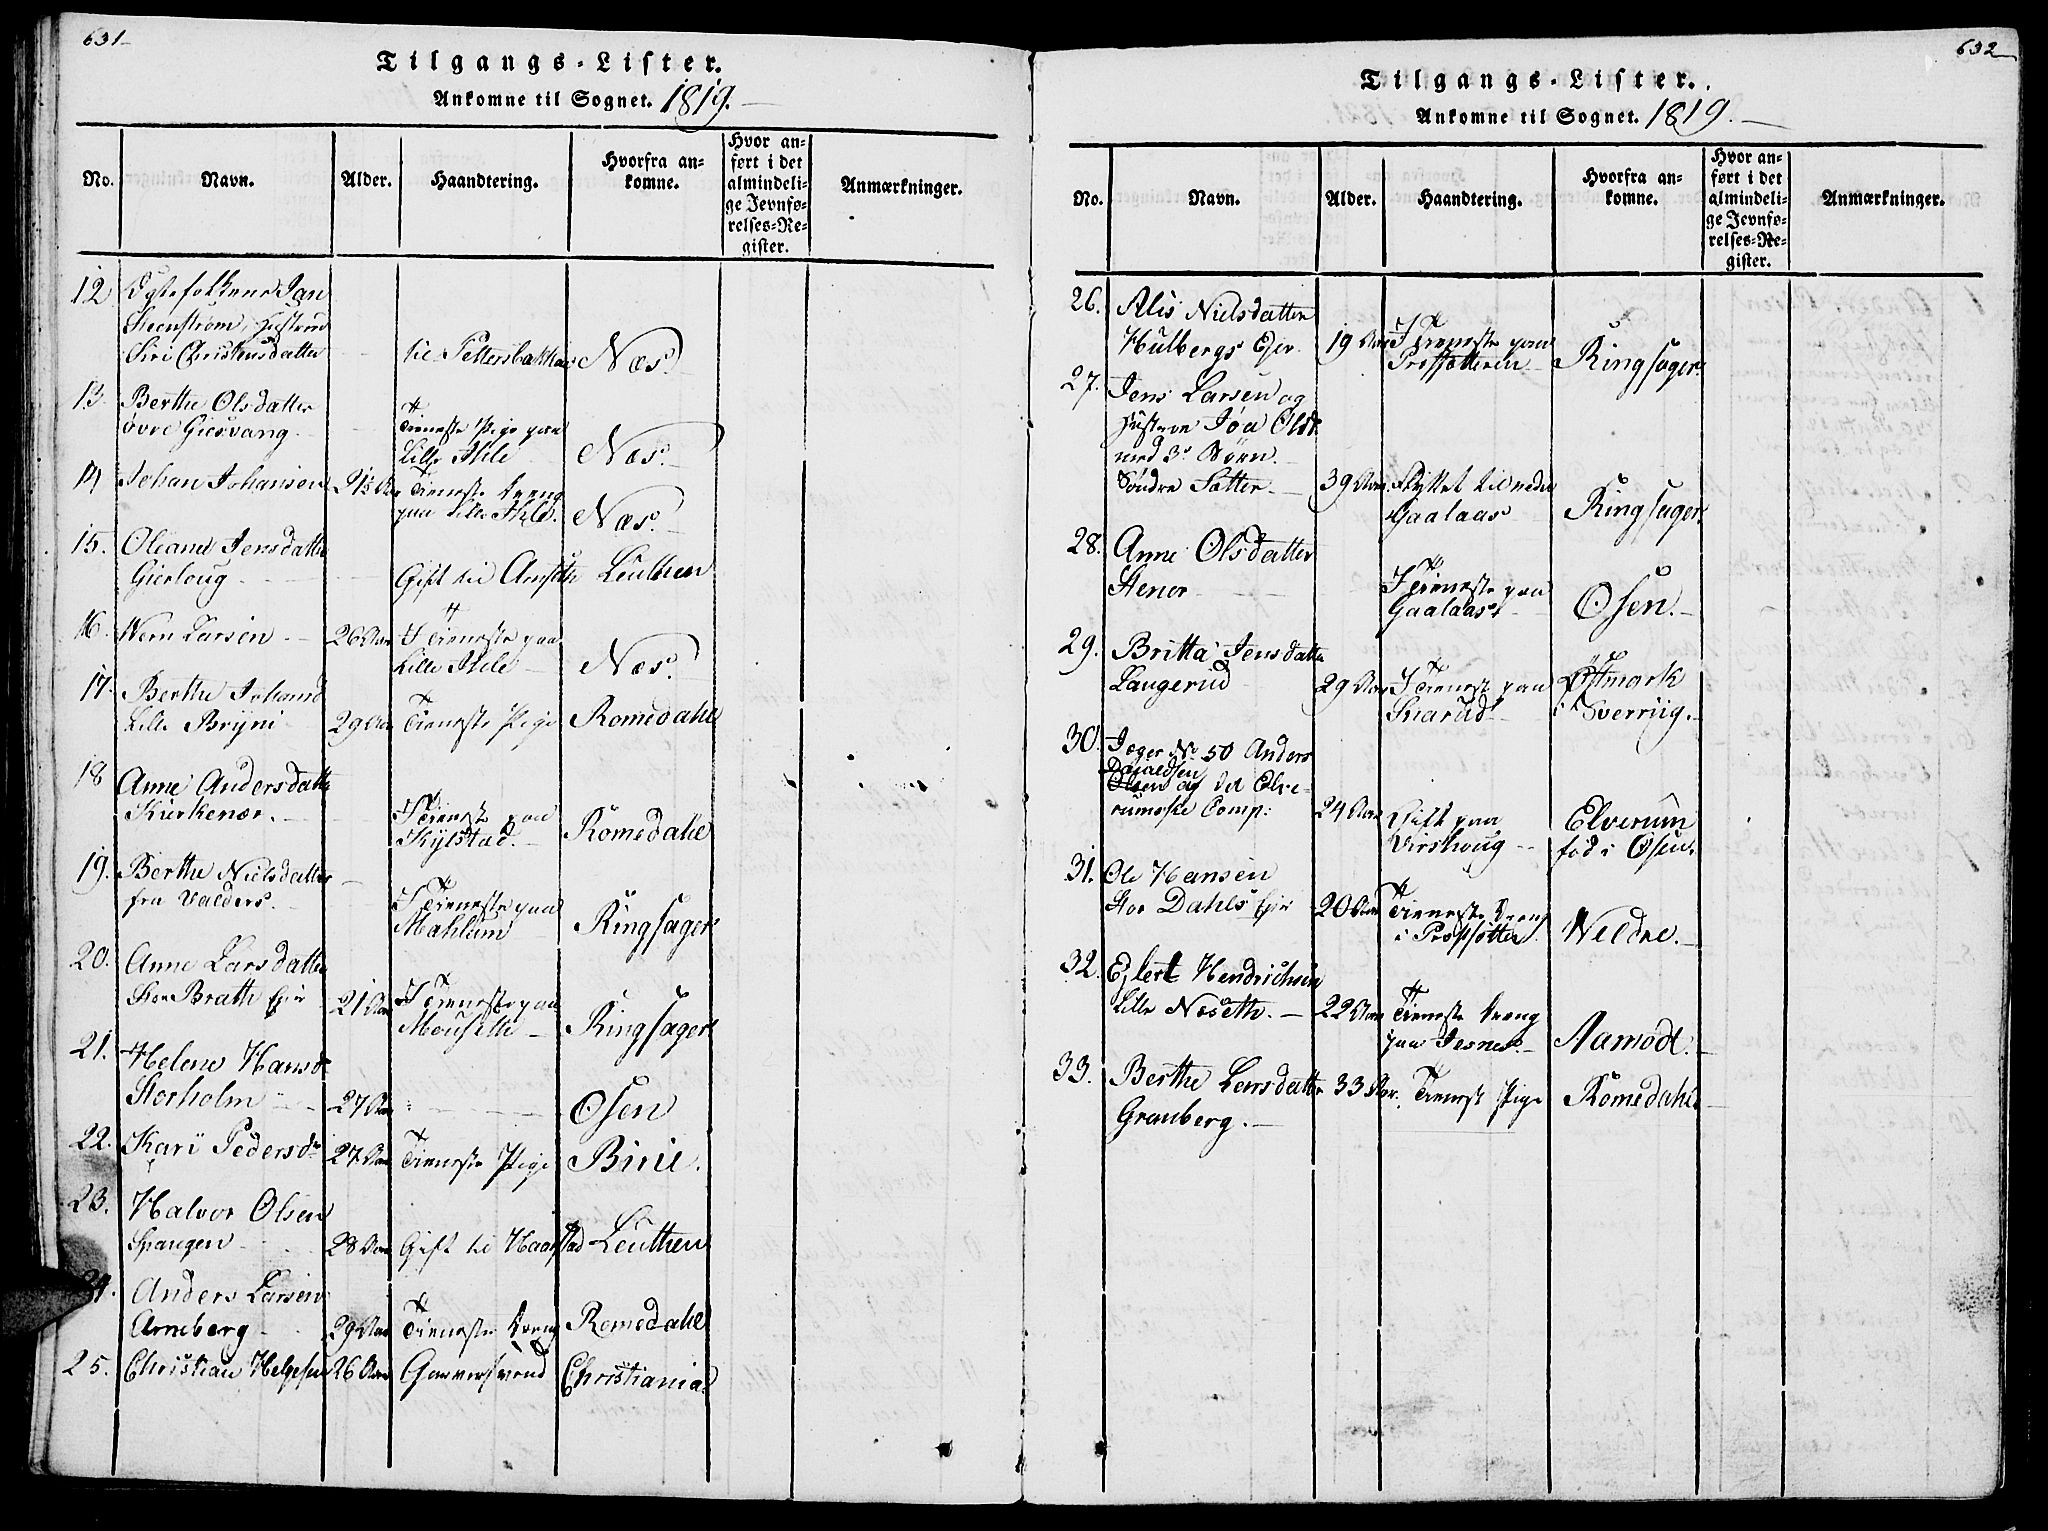 631
Tilgangs-Lister.
Ankomne til Sognet. 1819.
No. Navn. Alder. Haandtering. Hvorfra ankomne. Hvor anført i det almindelige Jevnførelses-Register. Anmærkninger.
12 Egtefolkene Jan
Steenstrøm, Hustrue
Siri Christensdatter til Pettersbakken Næs.
13. Berthe Olsdatter
øvre Giesvang Tieneste Pige paa
Lille Ihle Næs.
14 Johan Johansen 21½ Aar Tieneste dreng
paa Lille Ihle. Næs.
15. Oleane Jensdatter
Gierloug Gift til Amseth Leuthen
16. Wern Larsen 26 Aar I Tieneste paa
Lille Ihle Næs.
17. Berthe Johansd
Lille Bryni 29 Aar Tieneste Pige Romedahl
18 Anne Andersdatter
Kierkenær. I Tieneste paa
Kylstad. Romedahl
19. Berthe Nielsdatter
fra Valders. I Tieneste paa
Mahlum Ringsager
20. Anne Larsdatter
Stor Brath Eier 21 Aar I Tieneste paa
Ringsager
21. Helene Hansd
Storholm 27 Aar Osen
22. Kari Pedersdr 27 Aar Tieneste Pige Birie.
23. Halvor Olsen
Spangen 28 Aar Gift til Haarstad Leuthen
24. Anders Larsen
Arneberg 29 Aar Tieneste dreng Romedahl
25. Christian Helgesen 26 Aar Garversvend Christiania
632
Tilgangs-Lister.
Ankomne til Sognet. 1819.
No. Navn. Alder. Haandtering. Hvorfra ankomne. Hvor anført i det almindelige Jevnførelses-Register. Anmærkninger.
26. Alis Nielsdatter
Hulbergs Eier 19 Aar I Tieneste paa
Ringsager
27. Jens Larsen og
Hustrue Joa Olsdr
med 3 Børn.
Søndre Sætter. 39 Aar. Flyttet til nedre
Gaalaas Ringsager
28. Anne Olsdatter
Stenor I Tieneste paa
Gaalaas Osen.
29. Britta Jensdatter
Laugerud 29 Aar I Tieneste paa
Snarud Østmark
i Sverrig.
30. Jæger No 50 Anders
Olsen af det Elve-
rumske Comp: 24 Aar Gift paa
Virshoug Elverum
fød i Osen.
31. Ole Hansen
Stor Dahls Eier 20 Aar Tieneste dreng
i Weldre.
32. Ejlert Hendrichsen
Lille Noseth. 22 Aar Tieneste dreng
paa Jesnes. Aamodt.
33. Berthe Larsdatter 33 Aar. Tieneste Pige Romedahl
Granberg.